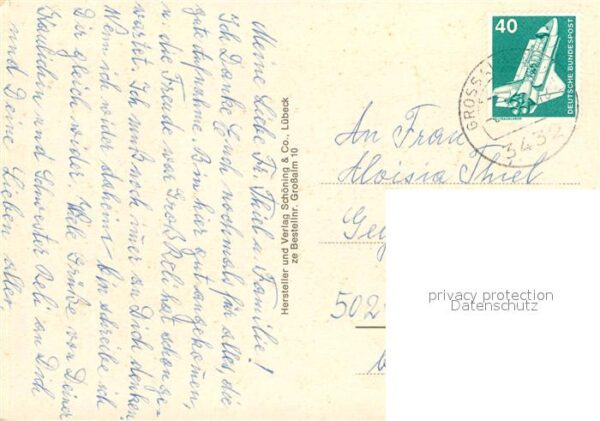 Meine Liebe Fr. Thiel u. Familie!
Ich Danke Euch nochmals für alles, die
gute Aufnahme. Bin hier gut angekommen,
u die Freude war Groß. Reli hat schon ge-
wartet. Ich muß noch immer an Dich denken
Wenn ich wieder daheim bin schreibe ich
Dir gleich wieder. Viele Grüße von Deiner
Fraulichin und Schwester Reli an Dich
und Deine Lieben alle.
Hersteller und Verlag Schöning & Co., Lübeck
ze Bestellnr. Großalm 10
40
DEUTSCHE BUNDESPOST
GROSS
3432
An Frau
Aloisia Thiel
502
privacy protection
Datenschutz